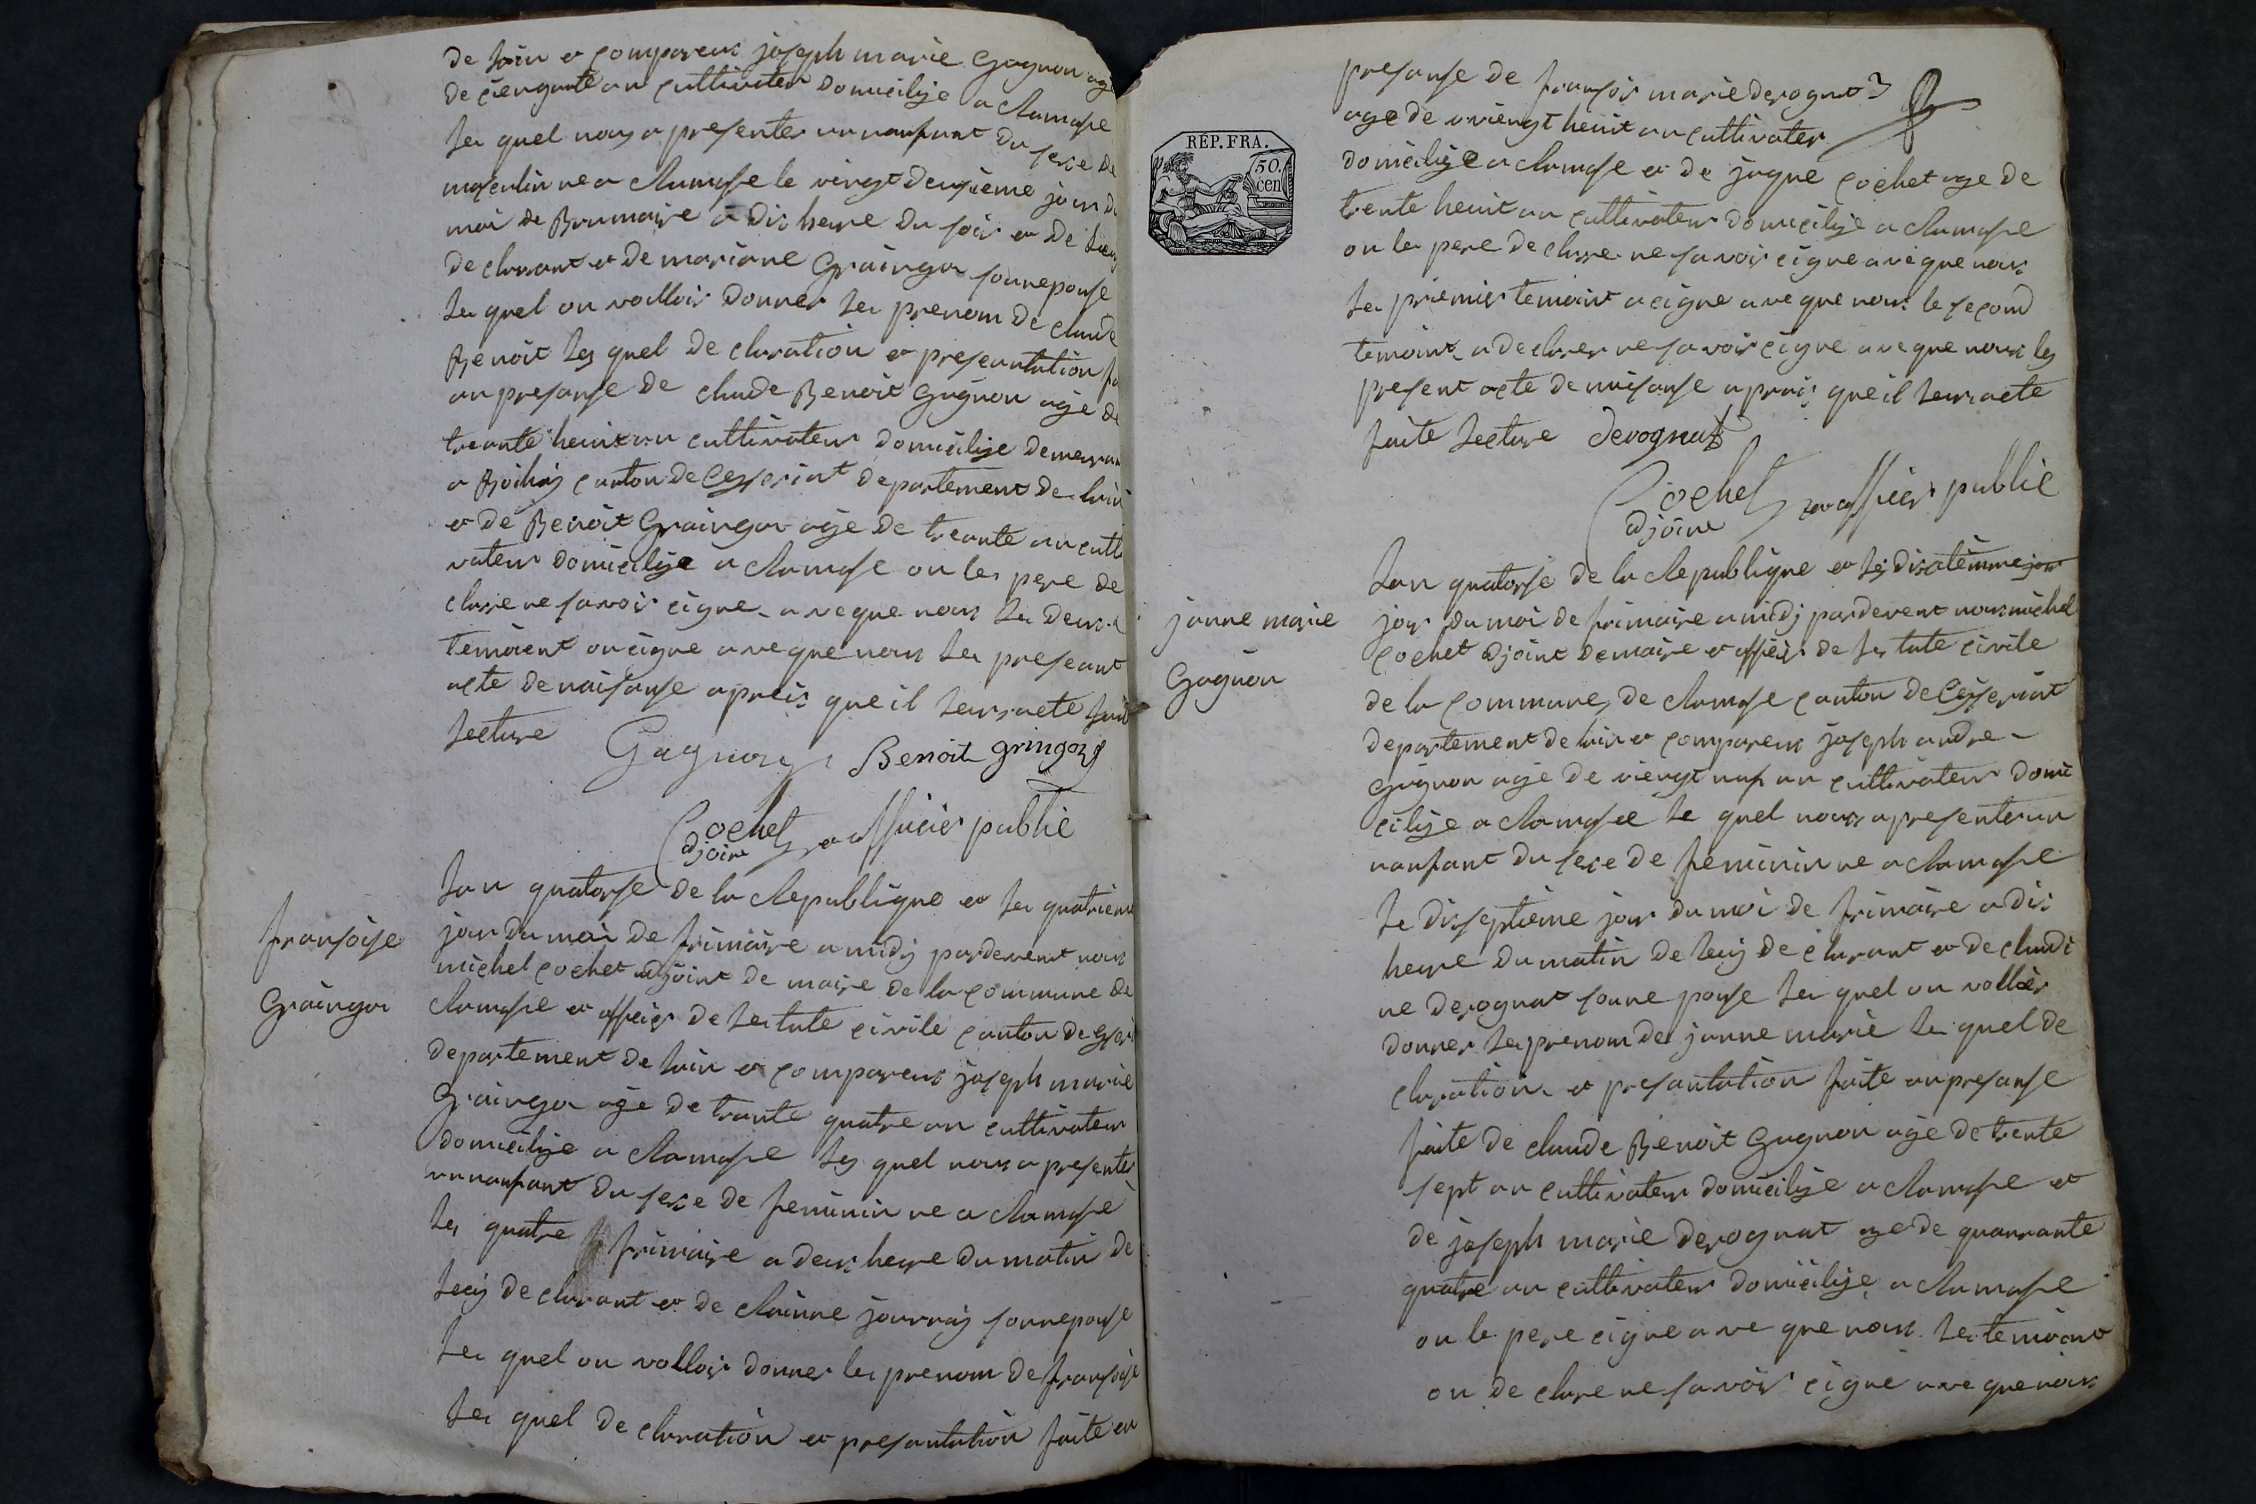 de lain et comparent joseph marie Gagnon age
de cienquante an cultivateur domicilije a chamase
le quel nous a presenter un nanfant du sexe de
masculin ne a chamase le viengt deusieme jour du
moi de Brumaire a dis heure du soir et de lui
de clarant et de mariane Graingon sonnepouse
le quel on volloir donner les prenom de claude
Benoit les quel de claration et presentation fa
an presanse de claude Benoit Gagnon age de
treante heuit an cultivateur domicilije demeran
a Bohas canton de Ceyseriat departement de lain
et de Benoit Graingon age de treante an culti
vateur domicilije a chamase ou les pere de
clare ne savoir cigne aveque nous les deus
temoient on cigne aveque nous les preseant
acte de naisanse apreis que il leur acte fait
lecture Gagnon Benoit gringoz
Cochet adjoin et officier public
fransoise
Graingon
Lan quatorse de la Republique et les quatrieme
jour du moi de frimaire a midj pardevent nous
michel cochet adjoint de maire de la commune de
chamase et officier de les tate civile canton de
departement de lain et comparent joseph marie
Graingon age de trante quatre an cultivateur
domicilije a chamase les quel nous a presenter
un nanfant du sexe de feminin ne a chamase
les quatre frimaire a deus heure du matin de
lui de clarant et de clainne jouvray sonnepouse
les quel on volloir donner les prenom de fransoise
les quel de claration et presantation faite en
REP. FRA.
50.
cen
presanse de fransois marie derognat
age de viengt heuit an cultivater
domicilije a chamase et de jaque cochet age de
trente heuit an cultivateur domicilije a chamase
ou les pere de clare ne savoir cigne aveque nous
les priemier temoint a cigne aveque nous le second
temoint a declarer ne savoir cigne aveque nous les
present acte de naisanse aprais que il leur acte
faite lecture derognat
Cochet adjoin et officier public
janne marie
Gagnon
Lan quatorse de la Republique et les disetiemme jour
jour du moi de frimaire a midj pardevent nous michel
cochet adjoint de maire et officier de les tate civile
de la commune de chamase canton de Ceyseriat
departement de lain et comparent joseph andre
Gagnon age de viengt nuf an cultivateur domi
cilije a chamase le quel nous a presenter un
nanfant du sexe de feminin ne a chamase
le disseptieme jour du moi de frimaire a dis
heure du matin de lui de clarant et de claudi
ne derognat sonne pouse les quel on volloir
donner les prenom de janne marie les quel de
claration et presantation faite an presanse
faite de claude Benoit Gagnon age de trente
sept an cultivateur domicilije a chamase et
de joseph marie derognat age de quarrante
quatre an cultivateur domicilije a chamase
ou le pere cigne aveque nous les temoint
on de clare ne savoir cigne aveque nous